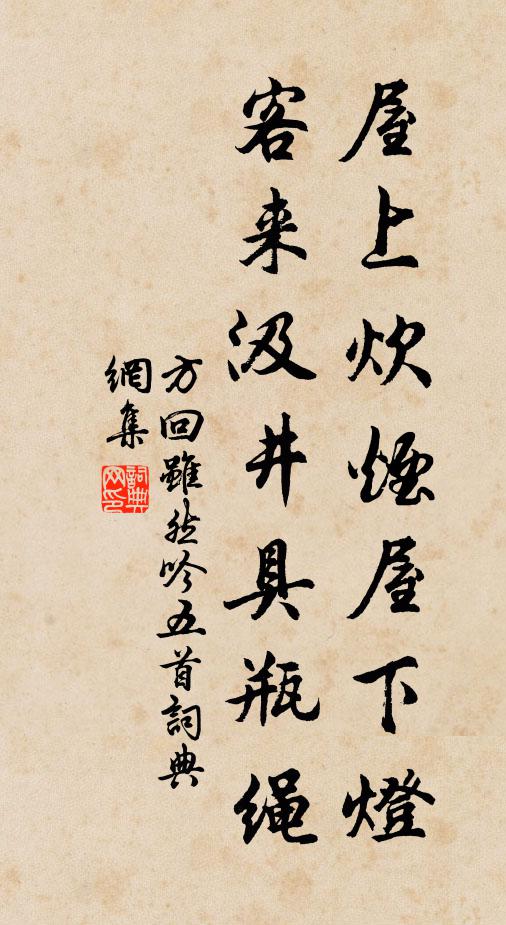 屋上炊煙屋下燈
客来汲井具瓶绳
方回雖然吟五首詞典
網集
詞典
网印